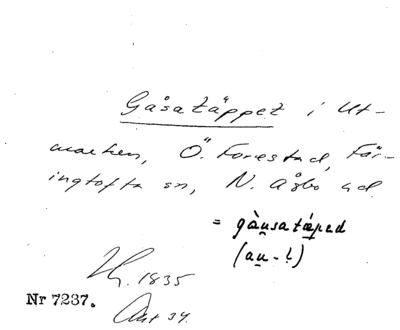 Gåsatäppet i Ut-
marken, Ö. Forestad, Fär-
ingtofta sn, N. Åsbo hd.
= gàu̱satæ̱ped
(au̱-!)
1835
Nr 7237. Akt 34.